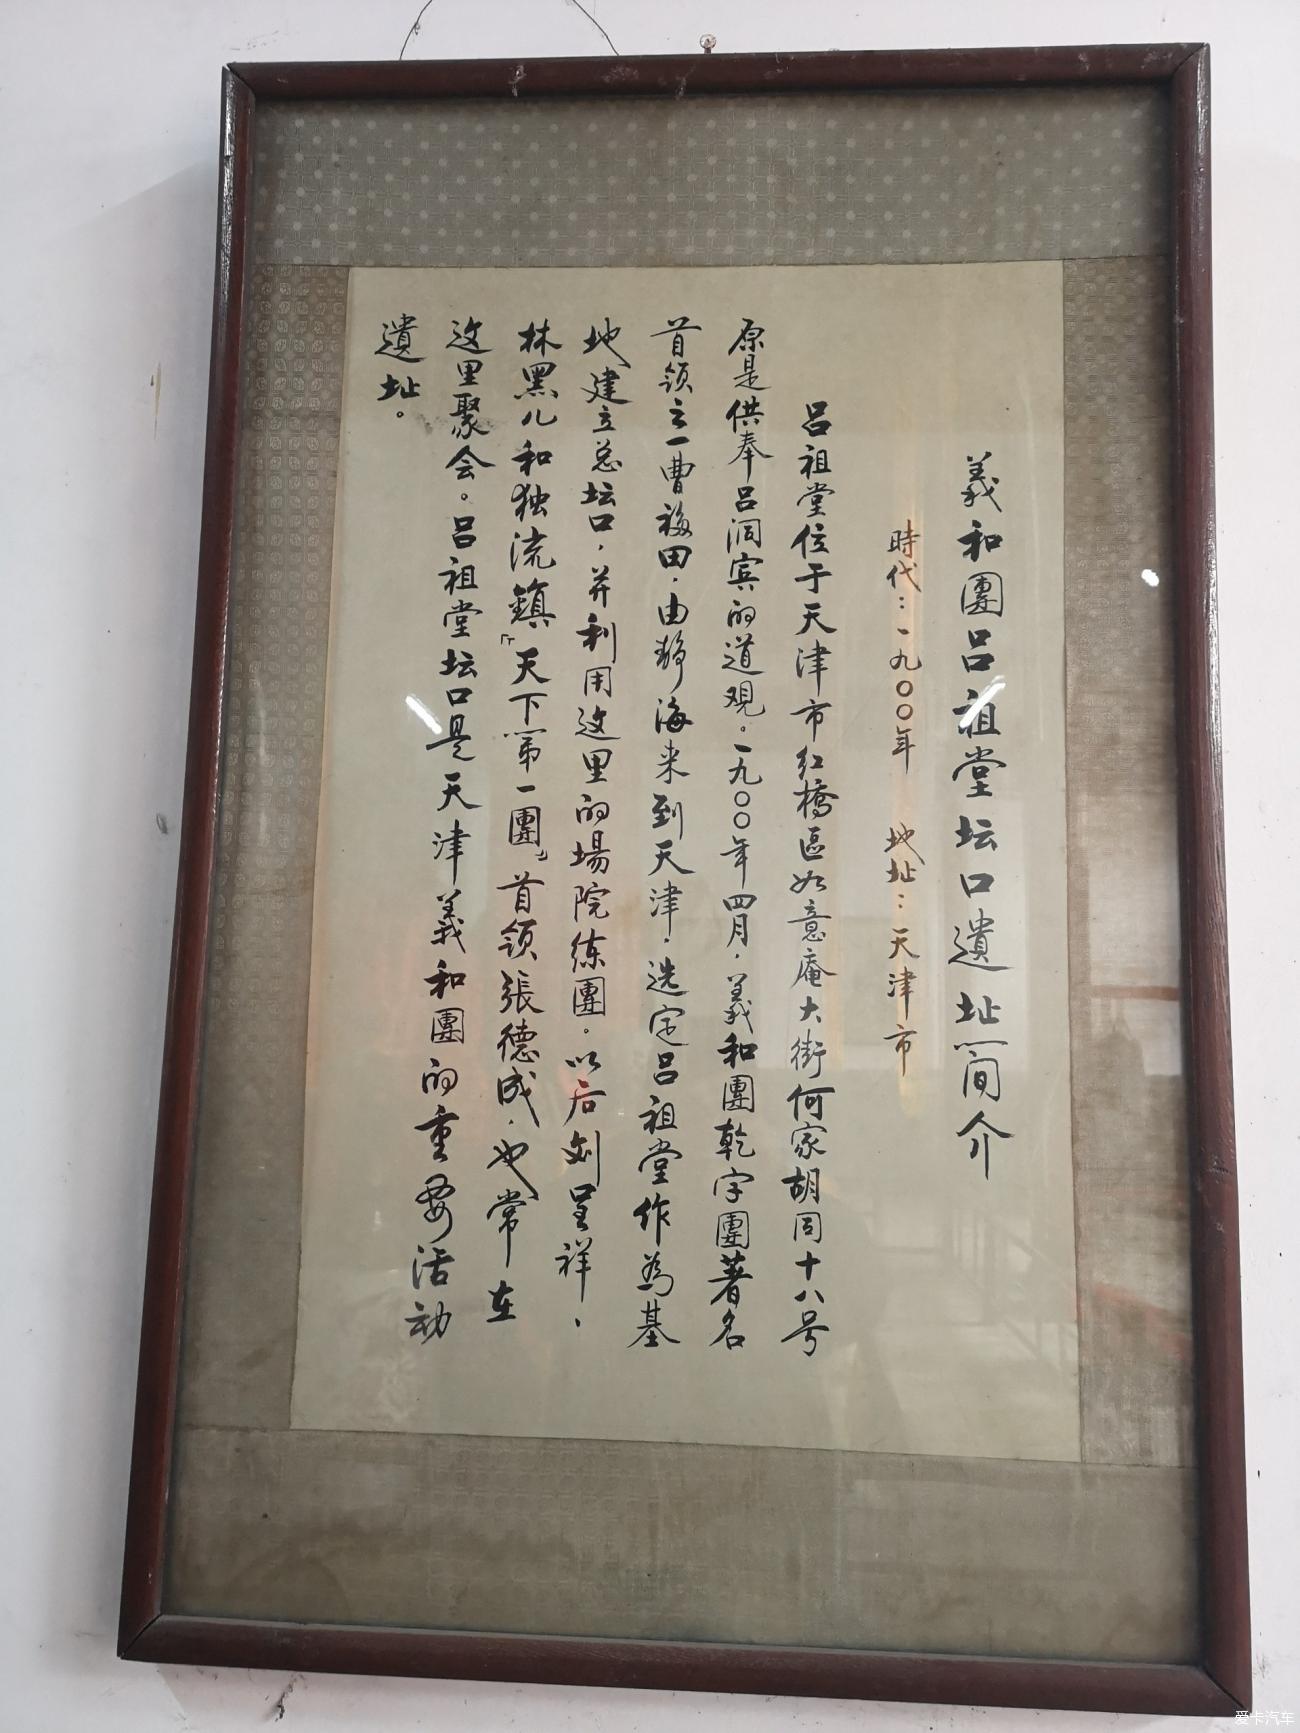 義和團吕祖堂坛口遺址简介
時代：一九〇〇年　地址：天津市
吕祖堂位于天津市红橋區如意庵大街何家胡同十八号
原是供奉吕洞宾的道观。一九〇〇年四月，義和團乾字團著名
首领之一曹福田，由静海来到天津，选定吕祖堂作為基
地建立总坛口，并利用这里的場院练團。以后刘呈祥，
林黑儿和独流鎮「天下第一團」首领張德成，也常在
这里聚会。吕祖堂坛口是天津義和團的重要活动
遺址。
爱卡汽车